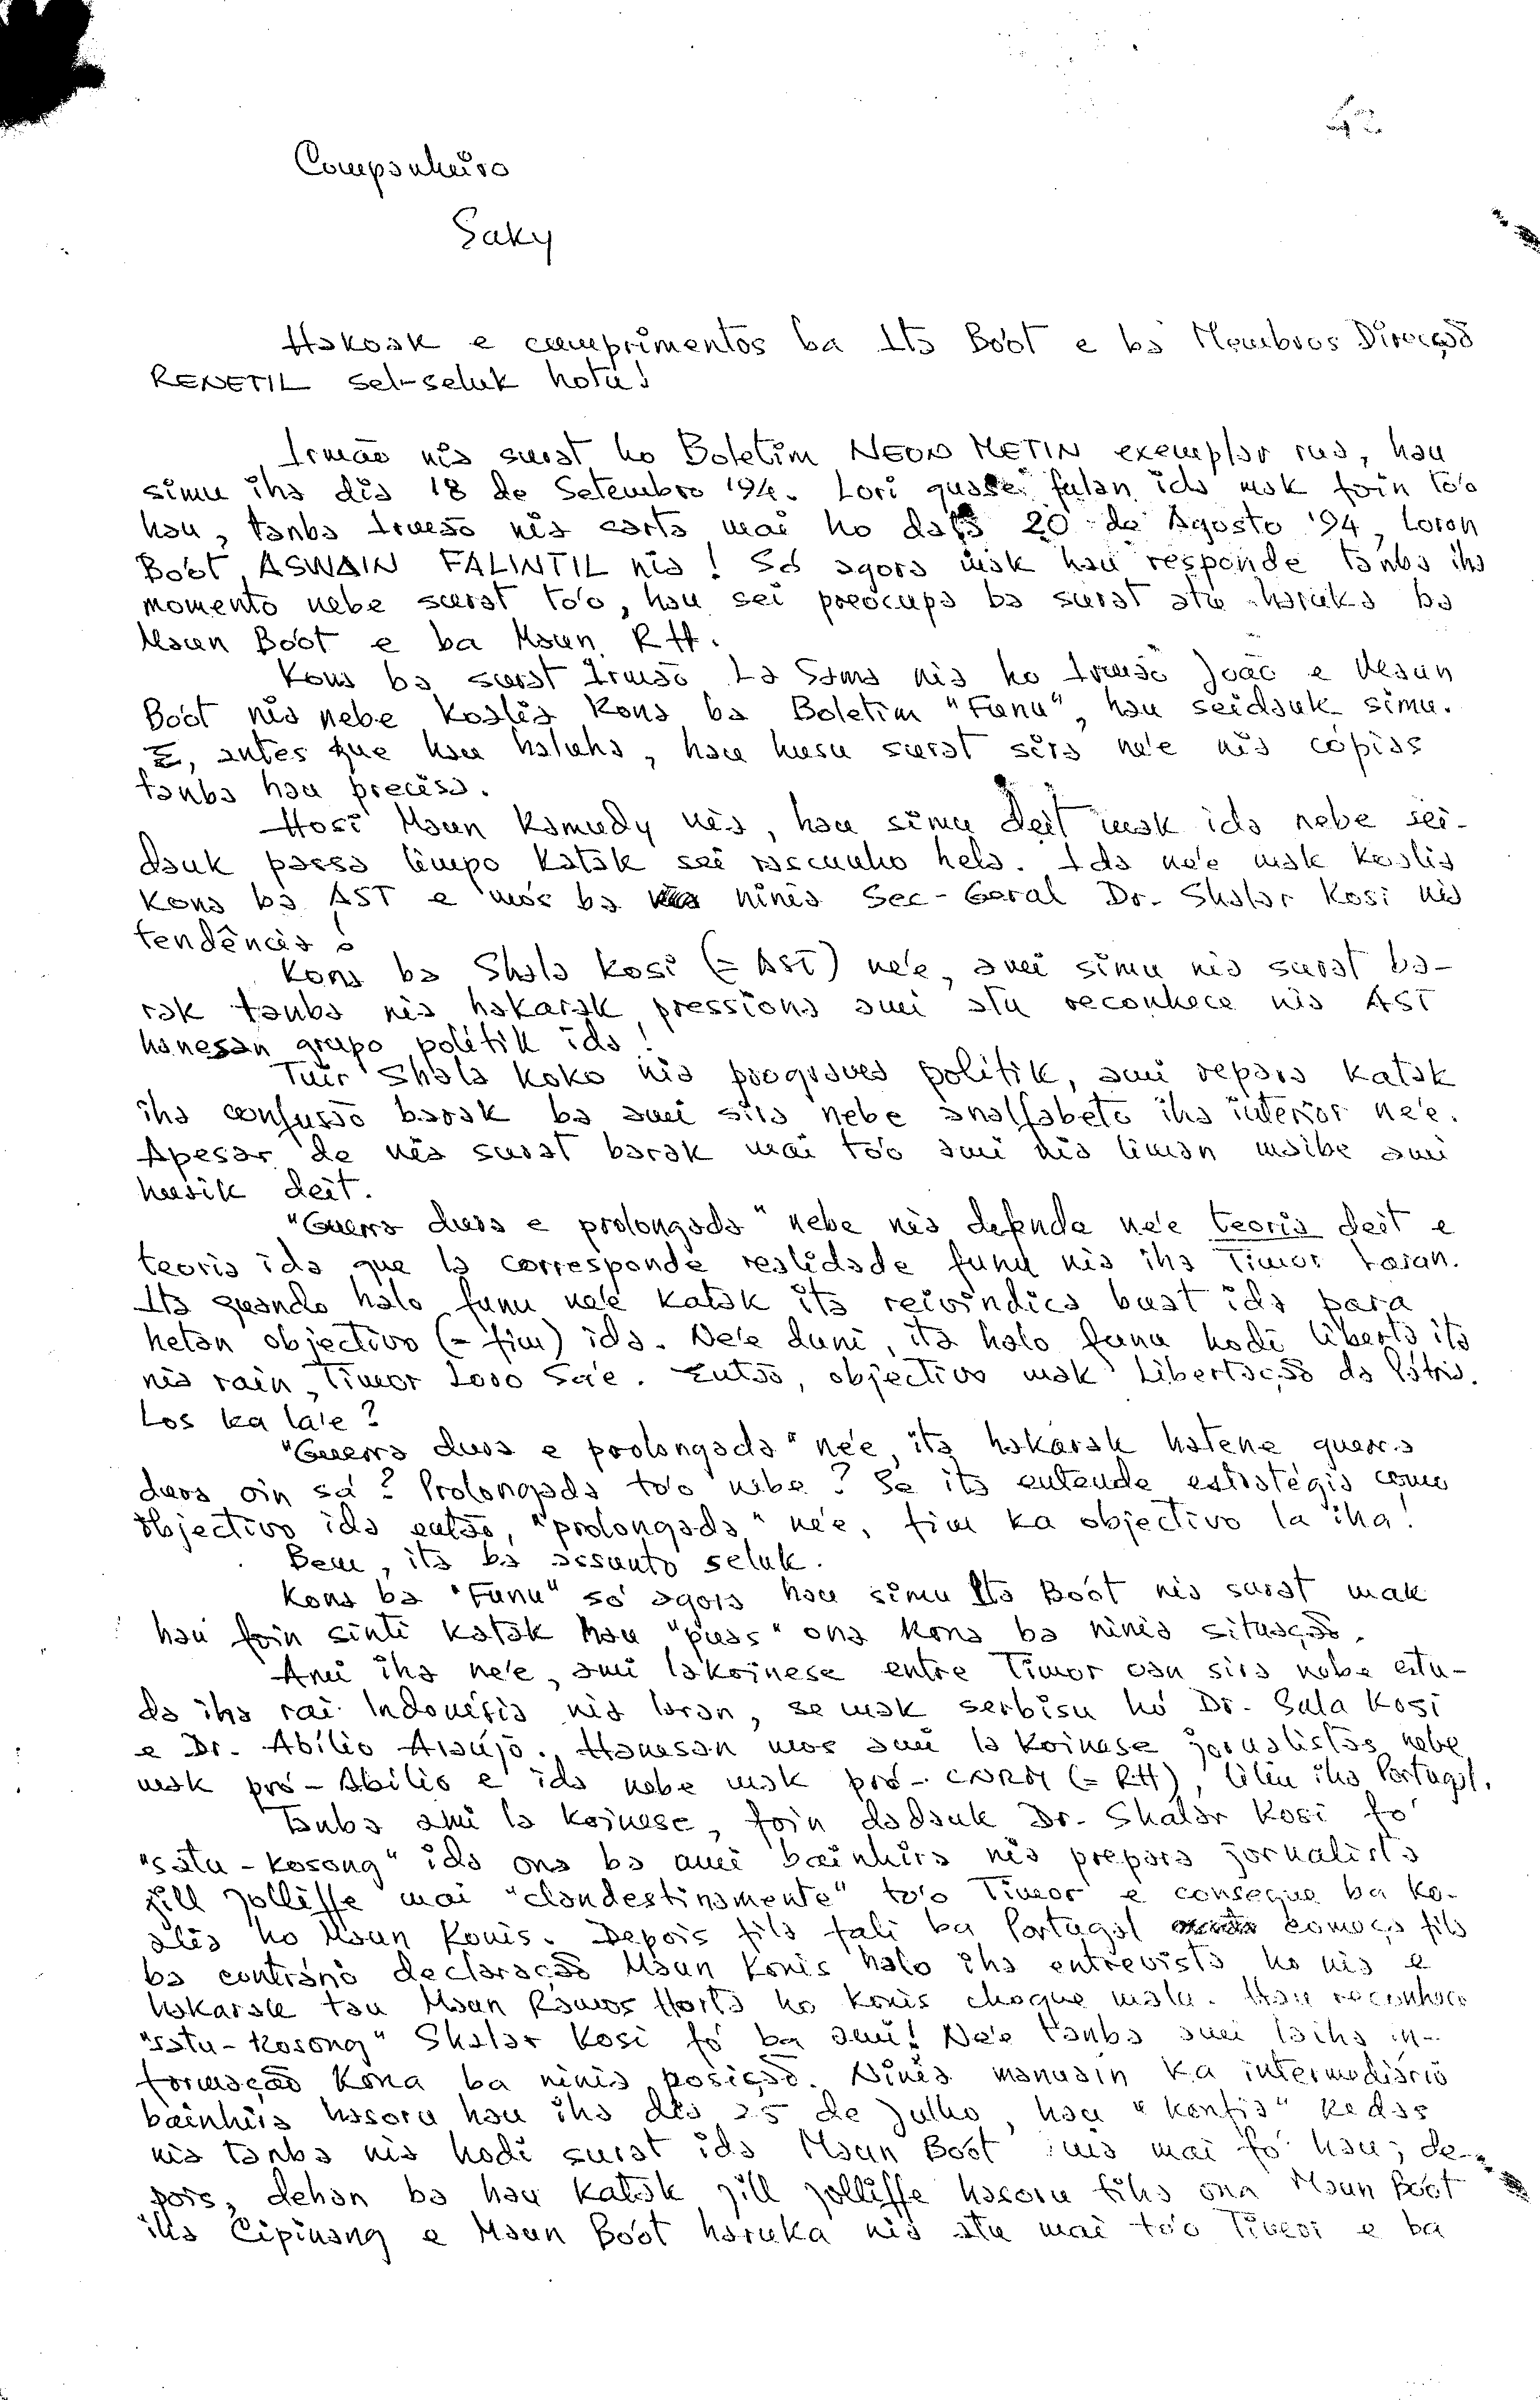 Companheiro
Saky
Hakoak e cumprimentos ba Ita Boót e ba Membros Direcção
RENETIL sel-seluk hotu!
Irmão nia surat ho Boletim NEON METIN exemplar rua, hau
simu iha dia 18 de Setembro '94. Lori quase fulan ida mak foin to'o
hau, tanba Irmão nia carta mai ho data 20 de Agosto '94, loron
Boót ASWAIN FALINTIL nia! Só agora mak hau responde tanba iha
momento nebe surat to'o, hau sei preocupa ba surat atu haruka ba
Maun Boót e ba Maun RH.
Kona ba surat Irmão La Sama nia ho Irmão João e Maun
Boót nia nebe koalia kona ba Boletim "Funu", hau seidauk simu.
E, antes que hau haluha, hau husu surat sira ne'e nia cópias
tanba hau precisa.
Hosi Maun Kamudy nia, hau simu deit mak ida nebe sei-
dauk passa limpo katak sei rascunho hela. Ida ne'e mak koalia
kona ba AST e mós ba ninia Sec-Geral Dr. Shalar Kosi nia
tendência!
Kona ba Shala Kosi (= AST) ne'e, ami simu nia surat ba-
rak tanba nia hakarak pressiona ami atu reconhece nia AST
hanesan grupo politik ida!
Tuir Shala koko nia programa politik, ami repara katak
iha confusão barak ba ami sira nebe analfabeto iha interior ne'e.
Apesar de nia surat barak mai to'o ami nia liman maibe ami
husik deit.
"Guerra dura e prolongada" nebe nia defende ne'e teoria deit e
teoria ida que la corresponde realidade funu nia iha Timor laran.
Ita quando halo funu ne'e katak ita reivindica buat ida para
hetan objectivo (= fim) ida. Ne'e duni, ita halo funu hodi liberta ita
nia rain, Timor Loro Sa'e. Então, objectivo mak Libertação da Pátria.
Los ka la'e?
"Guerra dura e prolongada" ne'e, ita hakarak hatene guerra
dura oin sá? Prolongada to'o nebe? Se ita entende estratégia como
objectivo ida então, "prolongada" ne'e, fim ka objectivo la iha!
Bem, ita ba assunto seluk.
Kona ba "Funu" só agora hau simu Ita Boót nia surat mak
hau foin sinti katak hau "puas" ona kona ba ninia situação.
Ami iha ne'e, ami la koinese entre Timor oan sira nebe estu-
da iha rai Indonésia nia laran, se mak serbisu hó Dr. Sala Kosi
e Dr. Abílio Araújo. Hanesan mos ami la koinese jornalistas nebe
mak pró-Abílio e ida nebe mak pró-CNRM (= RH), liliu iha Portugal.
Tanba ami la koinese, foin dadauk Dr. Shalar Kosi fó
"satu-kosong" ida ona ba ami bainhira nia prepara jornalista
Jill Jolliffe mai "clandestinamente" to'o Timor e consegue ba ko-
alia ho Maun Konis. Depois fila fali ba Portugal começa fila
ba contrário declaração Maun Konis halo iha entrevista ho nia e
hakarak tau Maun Ramos Horta ho Konis choque malu. Hau reconhece
"satu-kosong" Shalar Kosi fó ba ami! Ne'e tanba ami laiha in-
formação kona ba ninia posição. Ninia manusin ka intermediário
bainhira hasoru hau iha dia 25 de Julho, hau "konfia" kedas
nia tanba nia hodi surat ida Maun Boót nia mai fó hau; de-
pois, dehan ba hau katak Jill Jolliffe hasoru tiha ona Maun Boót
iha Cipinang e Maun Boót haruka nia atu mai to'o Timor e ba